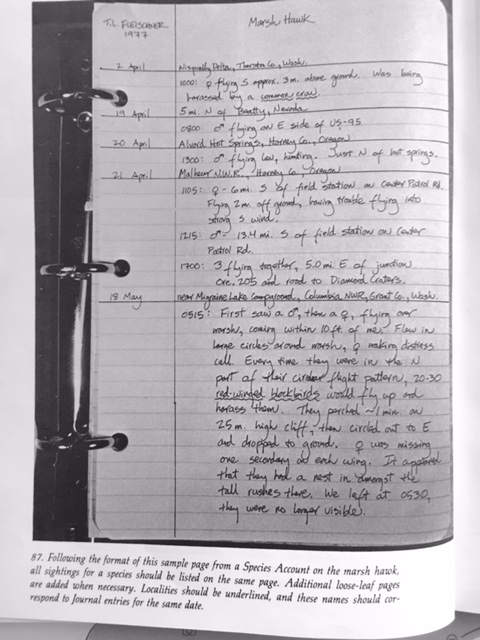 T.L. FLEISCHNER
1977
Marsh Hawk
2 April Nisqually Delta, Thurston Co., Wash.
1000: ♀ flying S approx. 3m. above ground. Was being
harassed by a common crow.
19 April 5 mi. N of Beatty, Nevada
0800: ♂ flying on E side of US-95.
20 April Alvord Hot Springs, Harney Co., Oregon
1300: ♂ flying low, hunting. Just N of hot springs.
21 April Malheur N.W.R., Harney Co., Oregon
1105: ♀ - 6 mi. S of field station on Center Patrol Rd.
Flying 2m. off ground, having trouble flying into
strong S wind.
1215: ♂ - 13.4 mi. S of field station on Center
Patrol Rd.
1700: 3 flying together, 5.0 mi E of junction
Ore. 205 and road to Diamond Craters.
18 May near Migraine Lake Campground, Columbia NWR, Grant Co., Wash.
0515: First saw a ♂, then a ♀, flying over
marsh, coming within 10 ft. of me. Flew in
large circles around marsh, ♀ making distress
call. Every time they were in the N
part of their circular flight pattern, 20-30
red-winged blackbirds would fly up and
harass them. They perched ~1 min. on
25m. high cliff, then circled out to E
and dropped to ground. ♀ was missing
one secondary on each wing. It appeared
that they had a nest in amongst the
tall rushes there. We left at 0530,
they were no longer visible.
87. Following the format of this sample page from a Species Account on the marsh hawk,
all sightings for a species should be listed on the same page. Additional loose-leaf pages
are added when necessary. Localities should be underlined, and these names should cor-
respond to Journal entries for the same date.